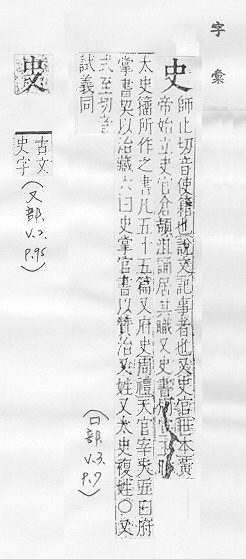 字彙
史 師止切音使籍也說文記事者也又史官世本黃
帝始立史官倉頡沮誦居其職又史書
太史籀所作之書凡五十五篇又府史周禮天官宰夫五曰府
掌官書以治藏六曰史掌官書以贊治又姓又太史複姓○又
式至切音
試義同
(口部
v.3.
p.7)
古文
史字
(又部.
v.2.
p.95)